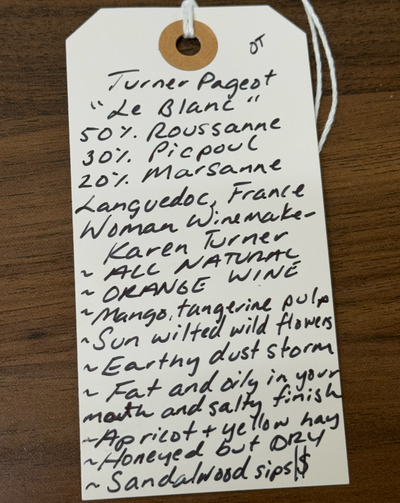 OT
Turner Pageot
"Le Blanc"
50% Roussanne
30% Picpoul
20% Marsanne
Languedoc, France
Woman Winemaker-
Karen Turner
~ ALL NATURAL
~ ORANGE WINE
~Mango, tangerine pulp
~Sun wilted wild flowers
~Earthy dust storm
~ Fat and oily in your
mouth and salty finish
~Apricot + yellow hay
~Honeyed but DRY
~Sandalwood sips|$